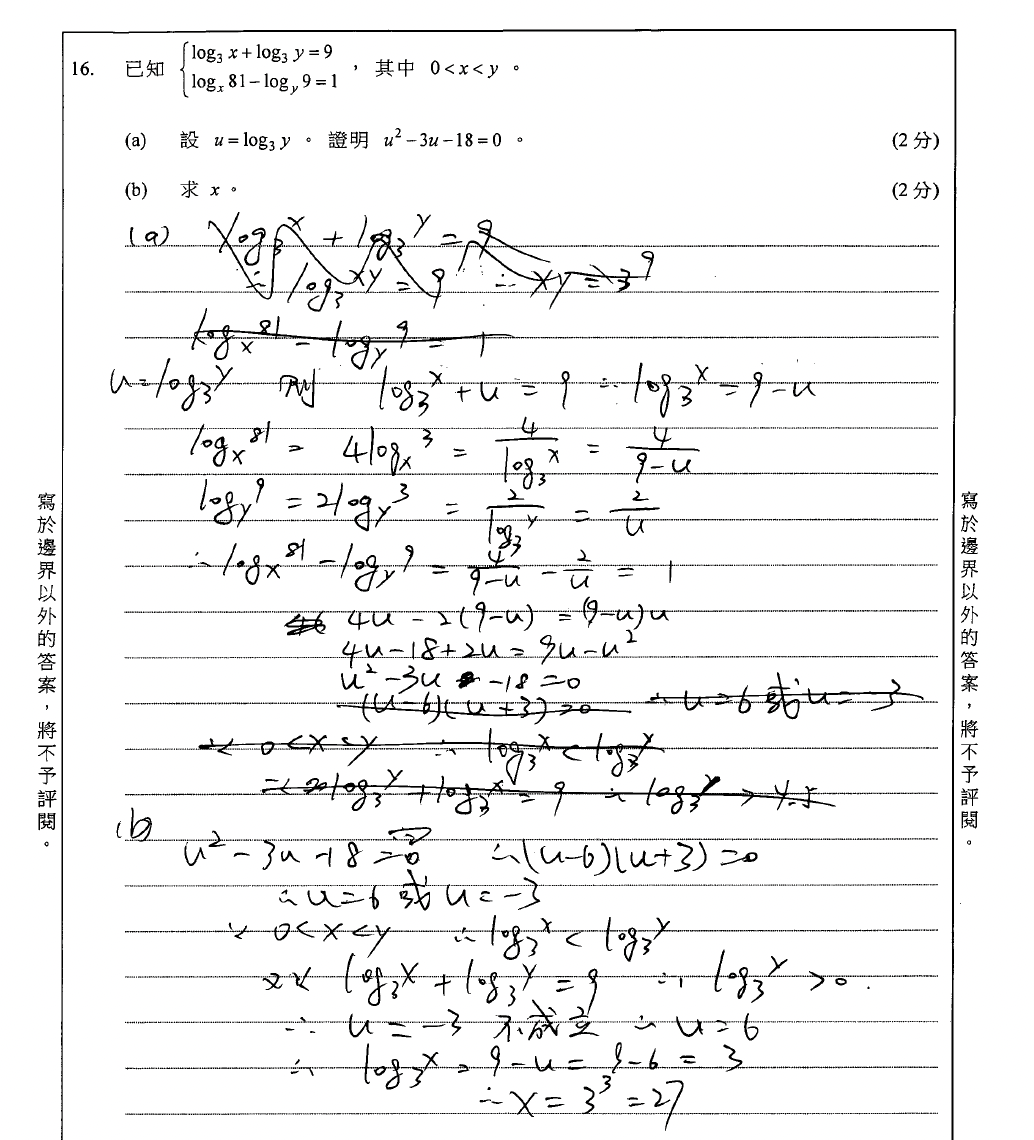 16. 已知 { log₃ x + log₃ y = 9
log_x 81 − log_y 9 = 1 , 其中 0 < x < y 。
(a) 設 u = log₃ y 。 證明 u² − 3u − 18 = 0 。 (2 分)
(b) 求 x 。 (2 分)
(a) log₃ x + log₃ y = 9
∴ log₃ xy = 9 ∴ xy = 3⁹
log_x 81 − log_y 9 = 1
u = log₃ y 則 log₃ x + u = 9 ∴ log₃ x = 9 − u
log_x 81 = 4 log_x 3 = 4/(log₃ x) = 4/(9−u)
log_y 9 = 2 log_y 3 = 2/(log₃ y) = 2/u
∴ log_x 81 − log_y 9 = 4/(9−u) − 2/u = 1
4u − 2(9−u) = (9−u)u
4u − 18 + 2u = 9u − u²
u² − 3u − 18 = 0
(u−6)(u+3) = 0 ∴ u = 6 或 u = −3
∵ 0 < x < y ∴ log₃ x < log₃ y
log₃ y + log₃ x = 9 ∴ log₃ y > 4.5
(b)
u² − 3u − 18 = 0 ∴ (u−6)(u+3) = 0
∴ u = 6 或 u = −3
∵ 0 < x < y ∴ log₃ x < log₃ y
又∵ log₃ x + log₃ y = 9 ∴ log₃ y > 0.
∴ u = −3 不成立 ∴ u = 6
∴ log₃ x = 9 − u = 9 − 6 = 3
∴ x = 3³ = 27
寫於邊界以外的答案，將不予評閱。
寫於邊界以外的答案，將不予評閱。